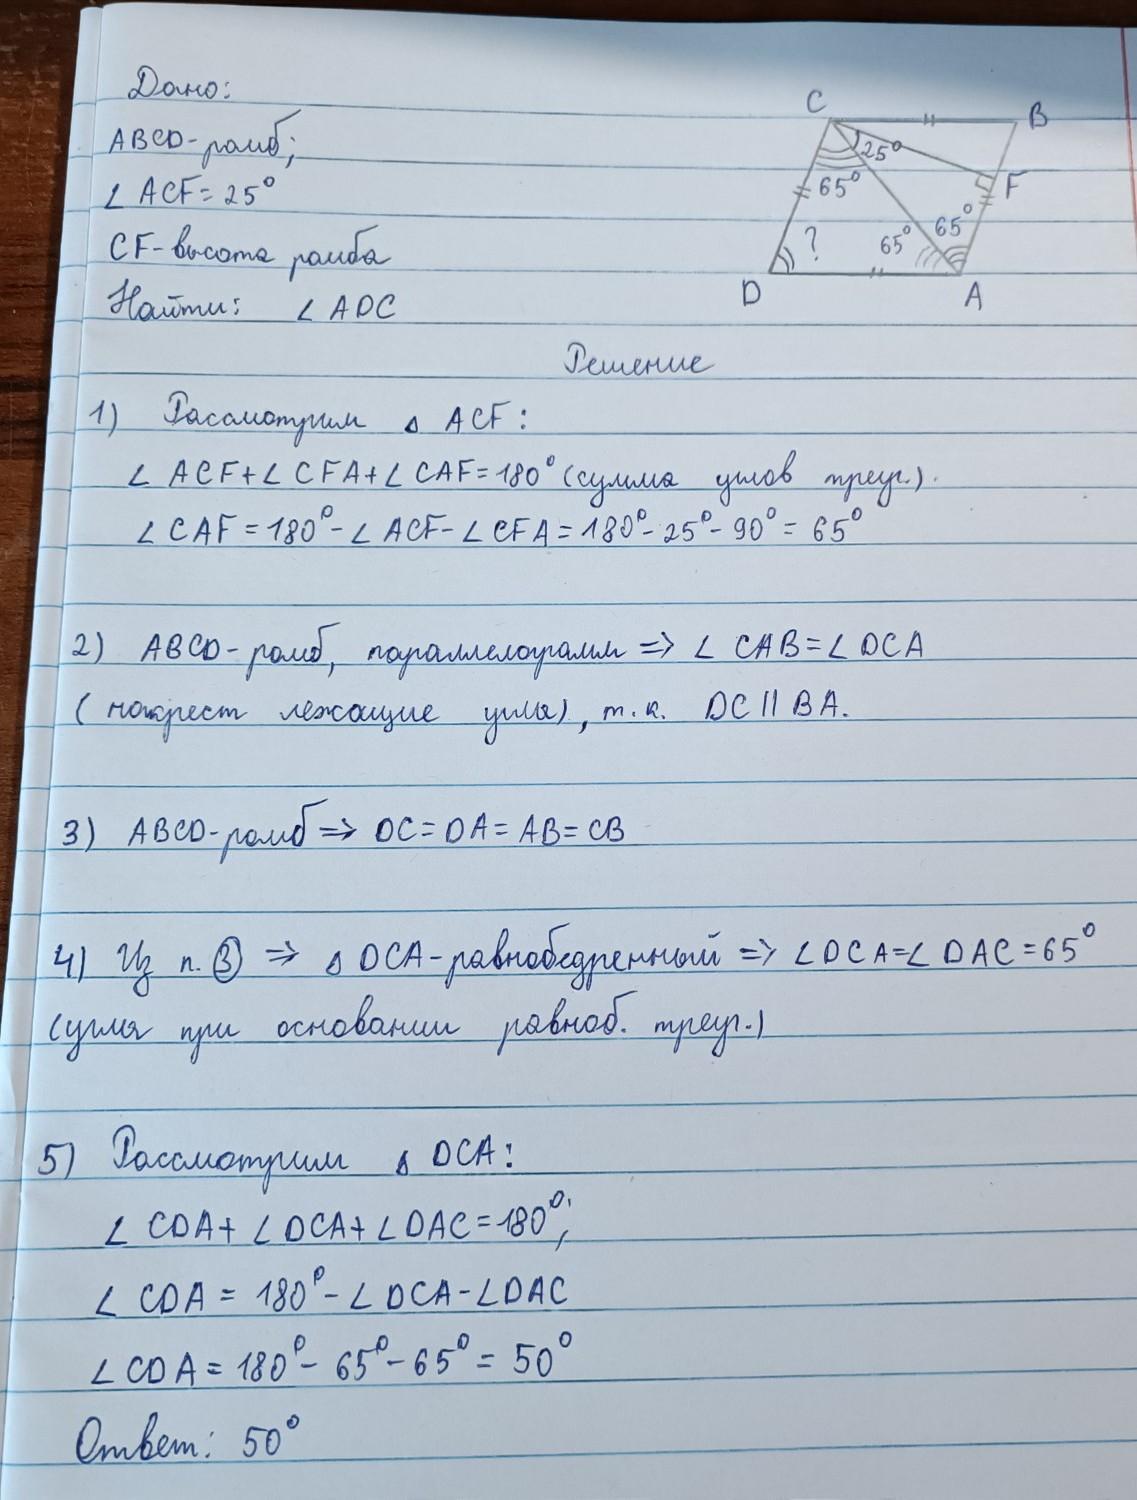 Дано:
ABCD-ромб;
∠ ACF = 25°
CF-высота ромба
Найти: ∠ ADC
C
B
25°
F
65°
65°
65°
?
D
A
Решение
1) Рассмотрим Δ ACF:
∠ ACF+∠ CFA+∠ CAF=180° (сумма углов треуг.).
∠ CAF = 180°-∠ ACF-∠ CFA = 180°-25°-90° = 65°
2) ABCD-ромб, параллелограмм => ∠ CAB=∠ DCA
(накрест лежащие углы), т.к. DC || BA.
3) ABCD-ромб => DC = DA = AB = CB
4) Из п. 3 => Δ DCA-равнобедренный => ∠DCA=∠ DAC = 65°
(углы при основании равноб. треуг.)
5) Рассмотрим Δ DCA:
∠ CDA+ ∠DCA+∠DAC=180°;
∠ CDA = 180°-∠ DCA-∠DAC
∠ CDA = 180°- 65°- 65° = 50°
Ответ: 50°